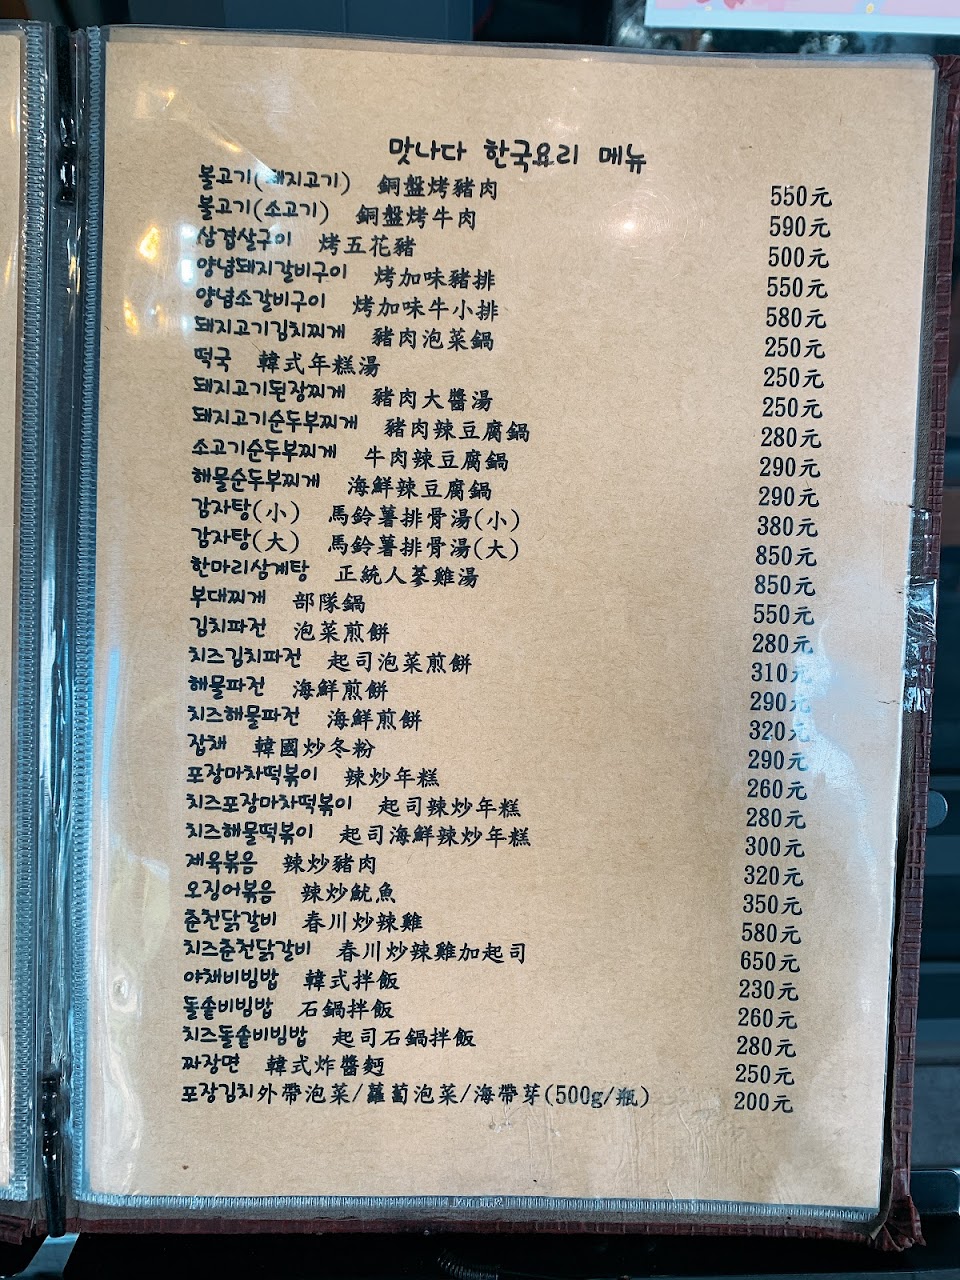 맛나다 한국요리 메뉴
불고기(돼지고기) 銅盤烤豬肉 550元
불고기(소고기) 銅盤烤牛肉 590元
삼겹살구이 烤五花豬 500元
양념돼지갈비구이 烤加味豬排 550元
양념소갈비구이 烤加味牛小排 580元
돼지고기김치찌개 豬肉泡菜鍋 250元
떡국 韓式年糕湯 250元
돼지고기된장찌개 豬肉大醬湯 250元
돼지고기순두부찌개 豬肉辣豆腐鍋 280元
소고기순두부찌개 牛肉辣豆腐鍋 290元
해물순두부찌개 海鮮辣豆腐鍋 290元
감자탕(小) 馬鈴薯排骨湯(小) 380元
감자탕(大) 馬鈴薯排骨湯(大) 850元
한마리삼계탕 正統人蔘雞湯 850元
부대찌개 部隊鍋 550元
김치파전 泡菜煎餅 280元
치즈김치파전 起司泡菜煎餅 310元
해물파전 海鮮煎餅 290元
치즈해물파전 海鮮煎餅 320元
잡채 韓國炒冬粉 290元
포장마차떡볶이 辣炒年糕 260元
치즈포장마차떡볶이 起司辣炒年糕 280元
치즈해물떡볶이 起司海鮮辣炒年糕 300元
제육볶음 辣炒豬肉 320元
오징어볶음 辣炒魷魚 350元
춘천닭갈비 春川炒辣雞 580元
치즈춘천닭갈비 春川炒辣雞加起司 650元
야채비빔밥 韓式拌飯 230元
돌솥비빔밥 石鍋拌飯 260元
치즈돌솥비빔밥 起司石鍋拌飯 280元
짜장면 韓式炸醬麵 250元
포장김치外帶泡菜/蘿蔔泡菜/海帶芽(500g/瓶) 200元